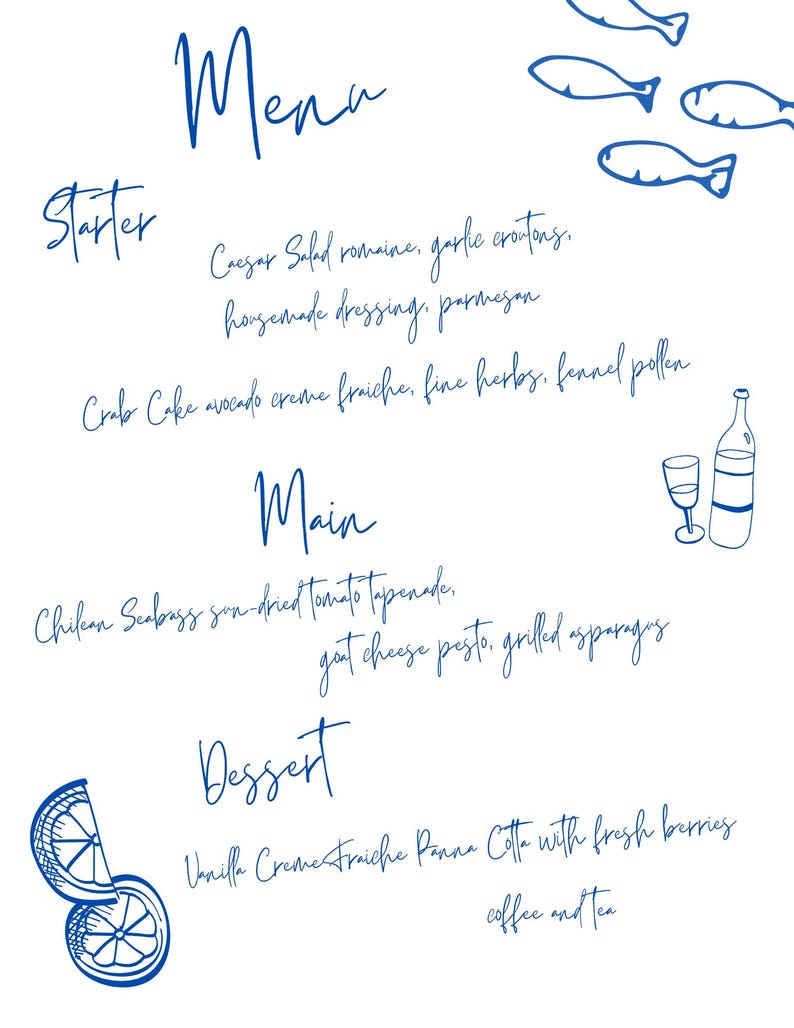 Menu
Starter
Caesar Salad romaine, garlic croutons,
housemade dressing, parmesan
Crab Cake avocado creme fraiche, fine herbs, fennel pollen
Main
Chilean Seabass sun-dried tomato tapenade,
goat cheese pesto, grilled asparagus
Dessert
Vanilla Creme Fraiche Panna Cotta with fresh berries
coffee and tea